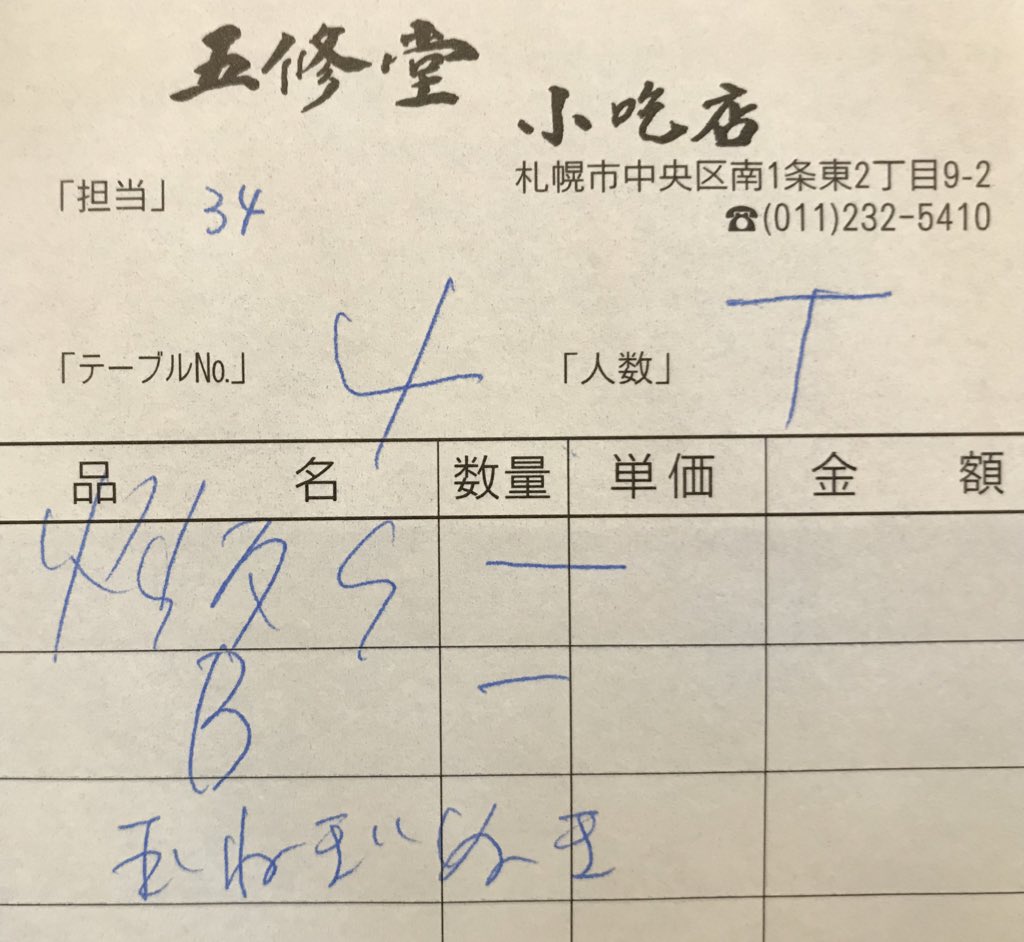 五修堂
小吃店
札幌市中央区南1条東2丁目9-2
☎(011)232-5410
「担当」 34
「テーブルNo.」 4 「人数」 T
品名 数量 単価 金額
炒反 一
B 一
玉ねぎぬき